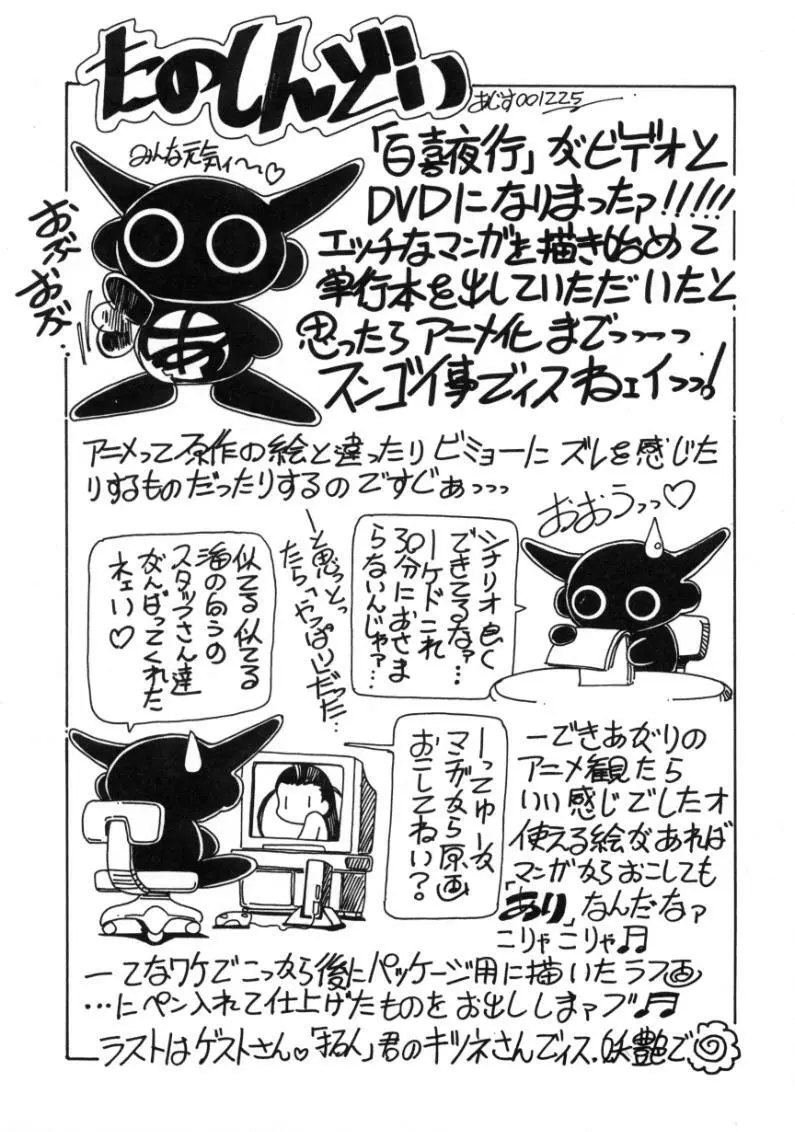 たのしんどい
あじす001225
みんな元気ィ〜〜♡
おぶおぶ…
「百喜夜行」がビデオと
DVDになりまったァ!!!!!
エッチなマンガを描き始めて
単行本を出していただいたと
思ったらアニメ化までっーーっ
スンゴイ事でィスねェイっっ!
アニメって原作の絵と違ったりビミョーにズレを感じた
りするものだったりするのですじぁっっっ
おおうっっ♡
シナリオ良く
できてるなァ…
ーケドこれ
30分におさま
らないんじゃァ…
ーと思っとっ
たら「やっぱい」だった…
似てる似てる
海の向うの
スタッフさん達
がんばってくれた
ネェい♡
ーってゆーか
マンガから原画
おこしてねい?。
ーできあがりの
アニメ観たら
いい感じでしたオ
使える絵があれば
マンガからおこしても
「あり」なんだなァ
こりゃこりゃ♬
ーてなワケでこっから後にパッケージ用に描いたラフ画
…にペン入れて仕上げたものをお出ししまァブ♬
ラストはゲストさん♡「拓人」君のキツネさんでィス.妖艶で